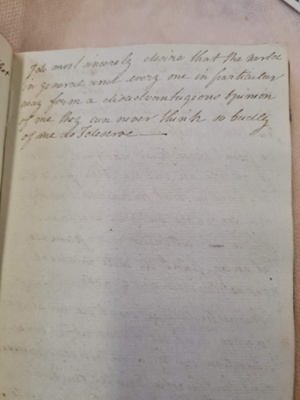 I do most sincerely desire that the world
in general and every one in particular
may form a disadvantageous Opinion
of me they can never think so badly
of me as I deserve